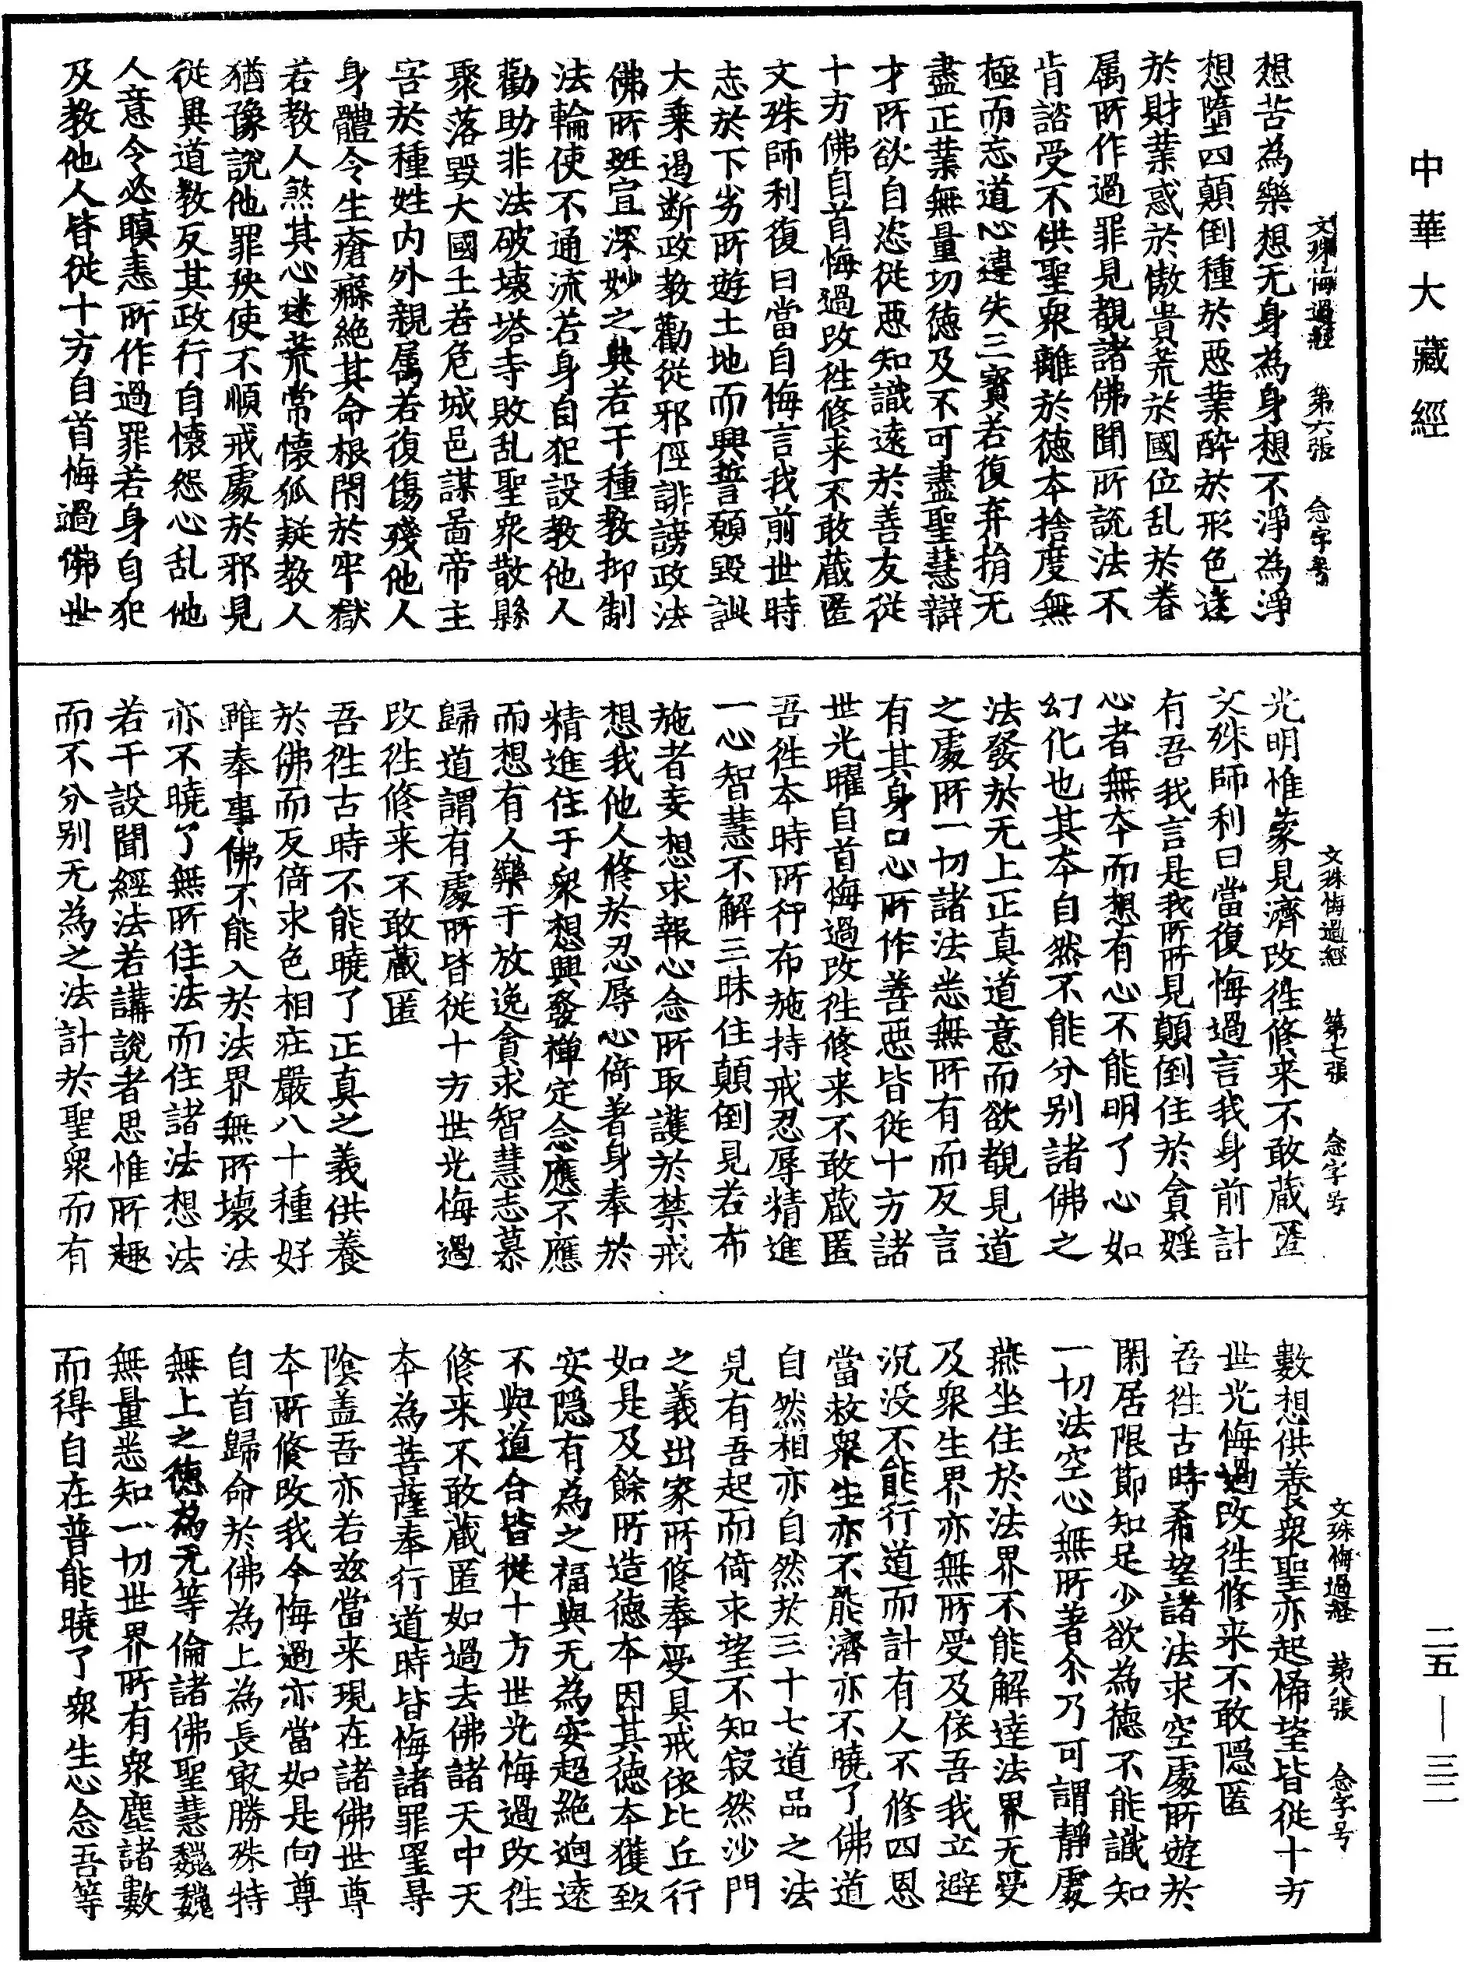 中華大藏經
文殊悔過經 第六張 念字号
想苦為樂想无身為身想不淨為淨
想墮四顛倒種於惡業醉於形色迷
於財業惑於慠貴荒於國位乱於眷
属所作過罪見覩諸佛聞所說法不
肯諮受不供聖衆離於德夲捨度無
極而忘道心違失三寶若復弃捐无
盡正業無量功德及不可盡聖慧辯
才所欲自恣従惡知識遠於善友従
十方佛自首悔過改往修来不敢蔵匿
文殊師利復曰當自悔言我前世時
志於下劣所遊土地而興誓願毀訿
大乗遏断政教勸従邪俓誹謗政法
佛所班宣深妙之典若干種教抑制
法輪使不通流若身自犯設教他人
勸助非法破壊塔寺敗乱聖衆散縣
聚落毀大國土若危城邑謀啚帝主
害於種姓内外親属若復傷殘他人
身體令生瘡癬絶其命根閇於牢獄
若教人煞其心迷荒常懐狐疑教人
猶豫說他罪殃使不順戒處於邪見
従異道教反其政行自懐怨心乱他
人意令必瞋恚所作過罪若身自犯
及教他人皆従十方自首悔過佛世
文殊悔過經 第七張 念字号
光明惟蒙見濟改往修来不敢蔵匿
文殊師利曰當復悔過言我身前計
有吾我言是我所所見顛倒住於貪婬
心者無夲而想有心不能明了心如
幻化也其夲自然不能分别諸佛之
法發於无上正真道意而欲覩見道
之處所一切諸法悉無所有而反言
有其身口心所作善惡皆従十方諸
世光曜自首悔過改往修来不敢蔵匿
吾往夲時所行布施持戒忍辱精進
一心智慧不解三昧住顛倒見若布
施者妄想求報心念所取護於禁戒
想我他人修於忍辱心倚著身奉於
精進住于衆想興發禅定念應不應
而想有人樂于放逸貪求智慧志慕
歸道謂有處所皆従十方世光悔過
改往修来不敢蔵匿
吾往古時不能曉了正真之義供養
於佛而反倚求色相莊嚴八十種好
雖奉事佛不能入於法界無所壊法
亦不曉了無所住法而住諸法想法
若干設聞經法若講說者思惟所趣
而不分别无為之法計於聖衆而有
文殊悔過經 第八張 念字号
數想供養衆聖亦起悕望皆従十方
世光悔過改往修来不敢隱匿
吾往古時希望諸法求空處所遊於
閑居限節知足少欲為德不能識知
一切法空心無所著尒乃可謂靜處
燕坐住於法界不能解達法界无受
及衆生界亦無所受及依吾我立避
沉没不能行道而計有人不修四恩
當救衆生亦不能濟亦不曉了佛道
自然相亦自然於三十七道品之法
見有吾起而倚求望不知寂然沙門
之義出家所修奉受具戒依比丘行
如是及餘所造德本因其德本獲致
安隱有為之福與无為安超絶迥遠
不與道合皆従十方世光悔過改往
修来不敢蔵匿如過去佛諸天中天
夲為菩薩奉行道時皆悔諸罪罣㝵
陰盖吾亦若兹當来現在諸佛世尊
夲所修改我今悔過亦當如是向尊
自首歸命於佛為上為長㝡勝殊特
無上之德為无等倫諸佛聖慧巍巍
無量悉知一切世界所有衆塵諸數
而得自在普能曉了衆生心念吾等
二五—三二